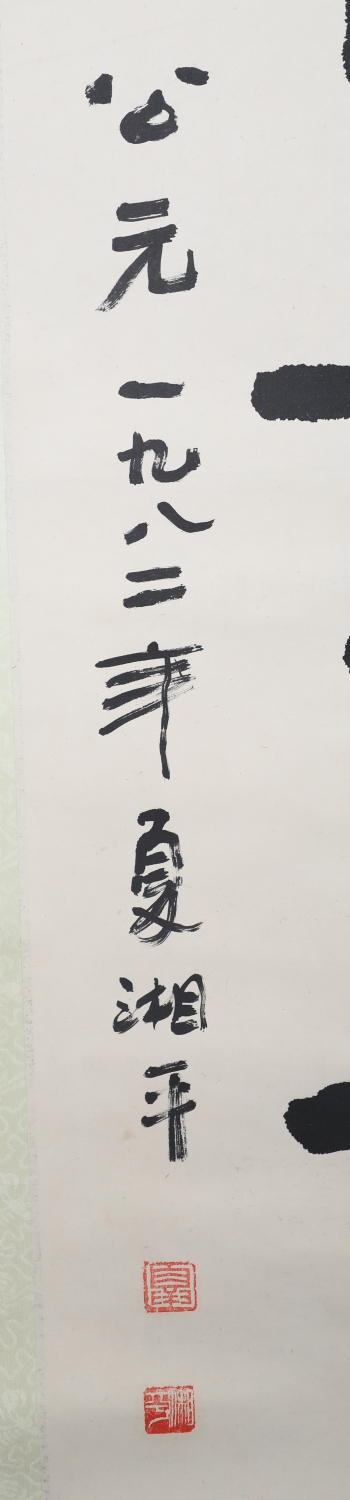 公元一九八二年夏湘平